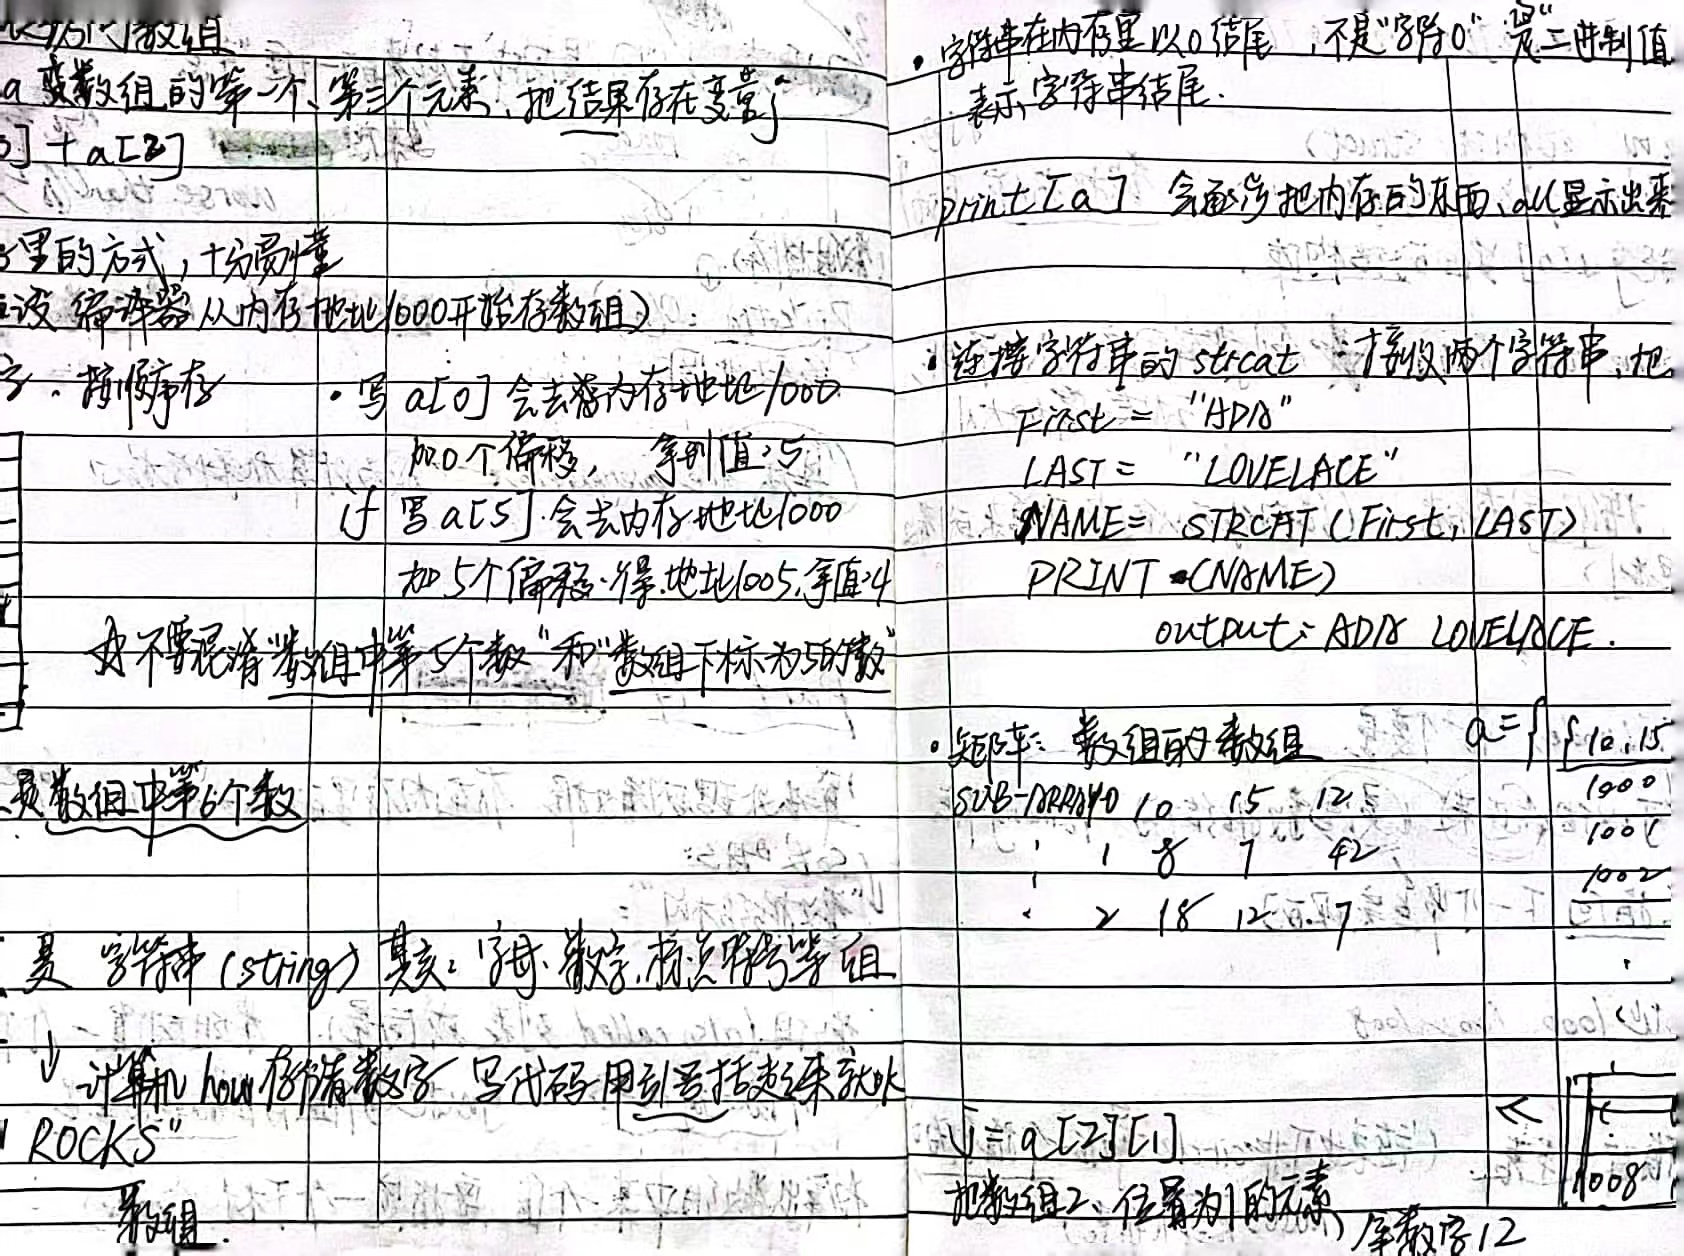 数组
a 数组的第一个、第三个元素,把结果存在变量j
] + a[2]
里的方式,十分易懂
设 编译器从内存地址1000开始存数组)
. 按顺序存
• 写 a[0] 会去看内存地址1000
加0个偏移, 拿到值:5
if 写 a[5]. 会去内存地址1000
加5个偏移.得.地址1005.拿值:4
不要混淆"数组中第5个数"和"数组下标为5的数"
数组中第6个数
是 字符串(string) 其实: 字母.数字.标点符号等 组
↓ 计算机 how 存储数字 写代码用引号括起来就水
ROCKS"
数组.
• 字符串在内存里以0结尾 ,不是"字符0" 是"二进制值
表示字符串结尾.
print[a] 会逐步把内存的东西、all显示出来
• 连接字符串的 strcat 接收两个字符串,把
First = "ADA"
LAST = "LOVELACE"
NAME = STRCAT (First, LAST)
PRINT (NAME)
output: ADA LOVELACE.
• 矩阵: 数组的数组 a={ {10,15
SUB-ARRAY0 10 15 12 1000
1 8 7 42 1001
1002
2 18 12 7
j = a[2][1] <
1008
把数组2、位置为1的元素, 拿数字12